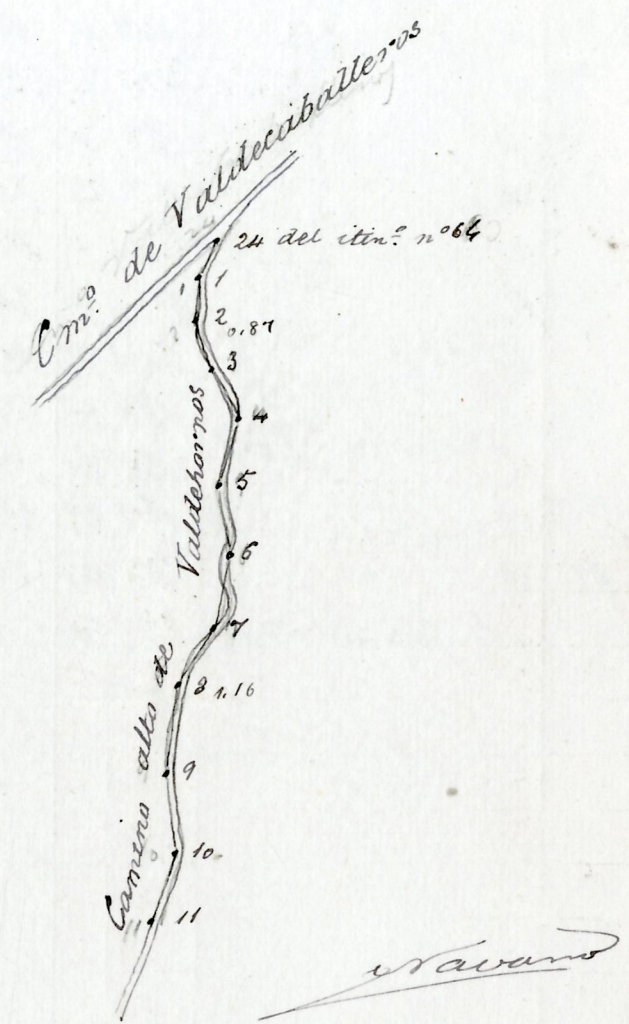 Cmº. de Valdecaballeros
24 del itinº. nº 64
1 1
2
0,87
3
4
5
6
7
8 1,16
9
10
11
Camino alto de Valdehornos
Navarro